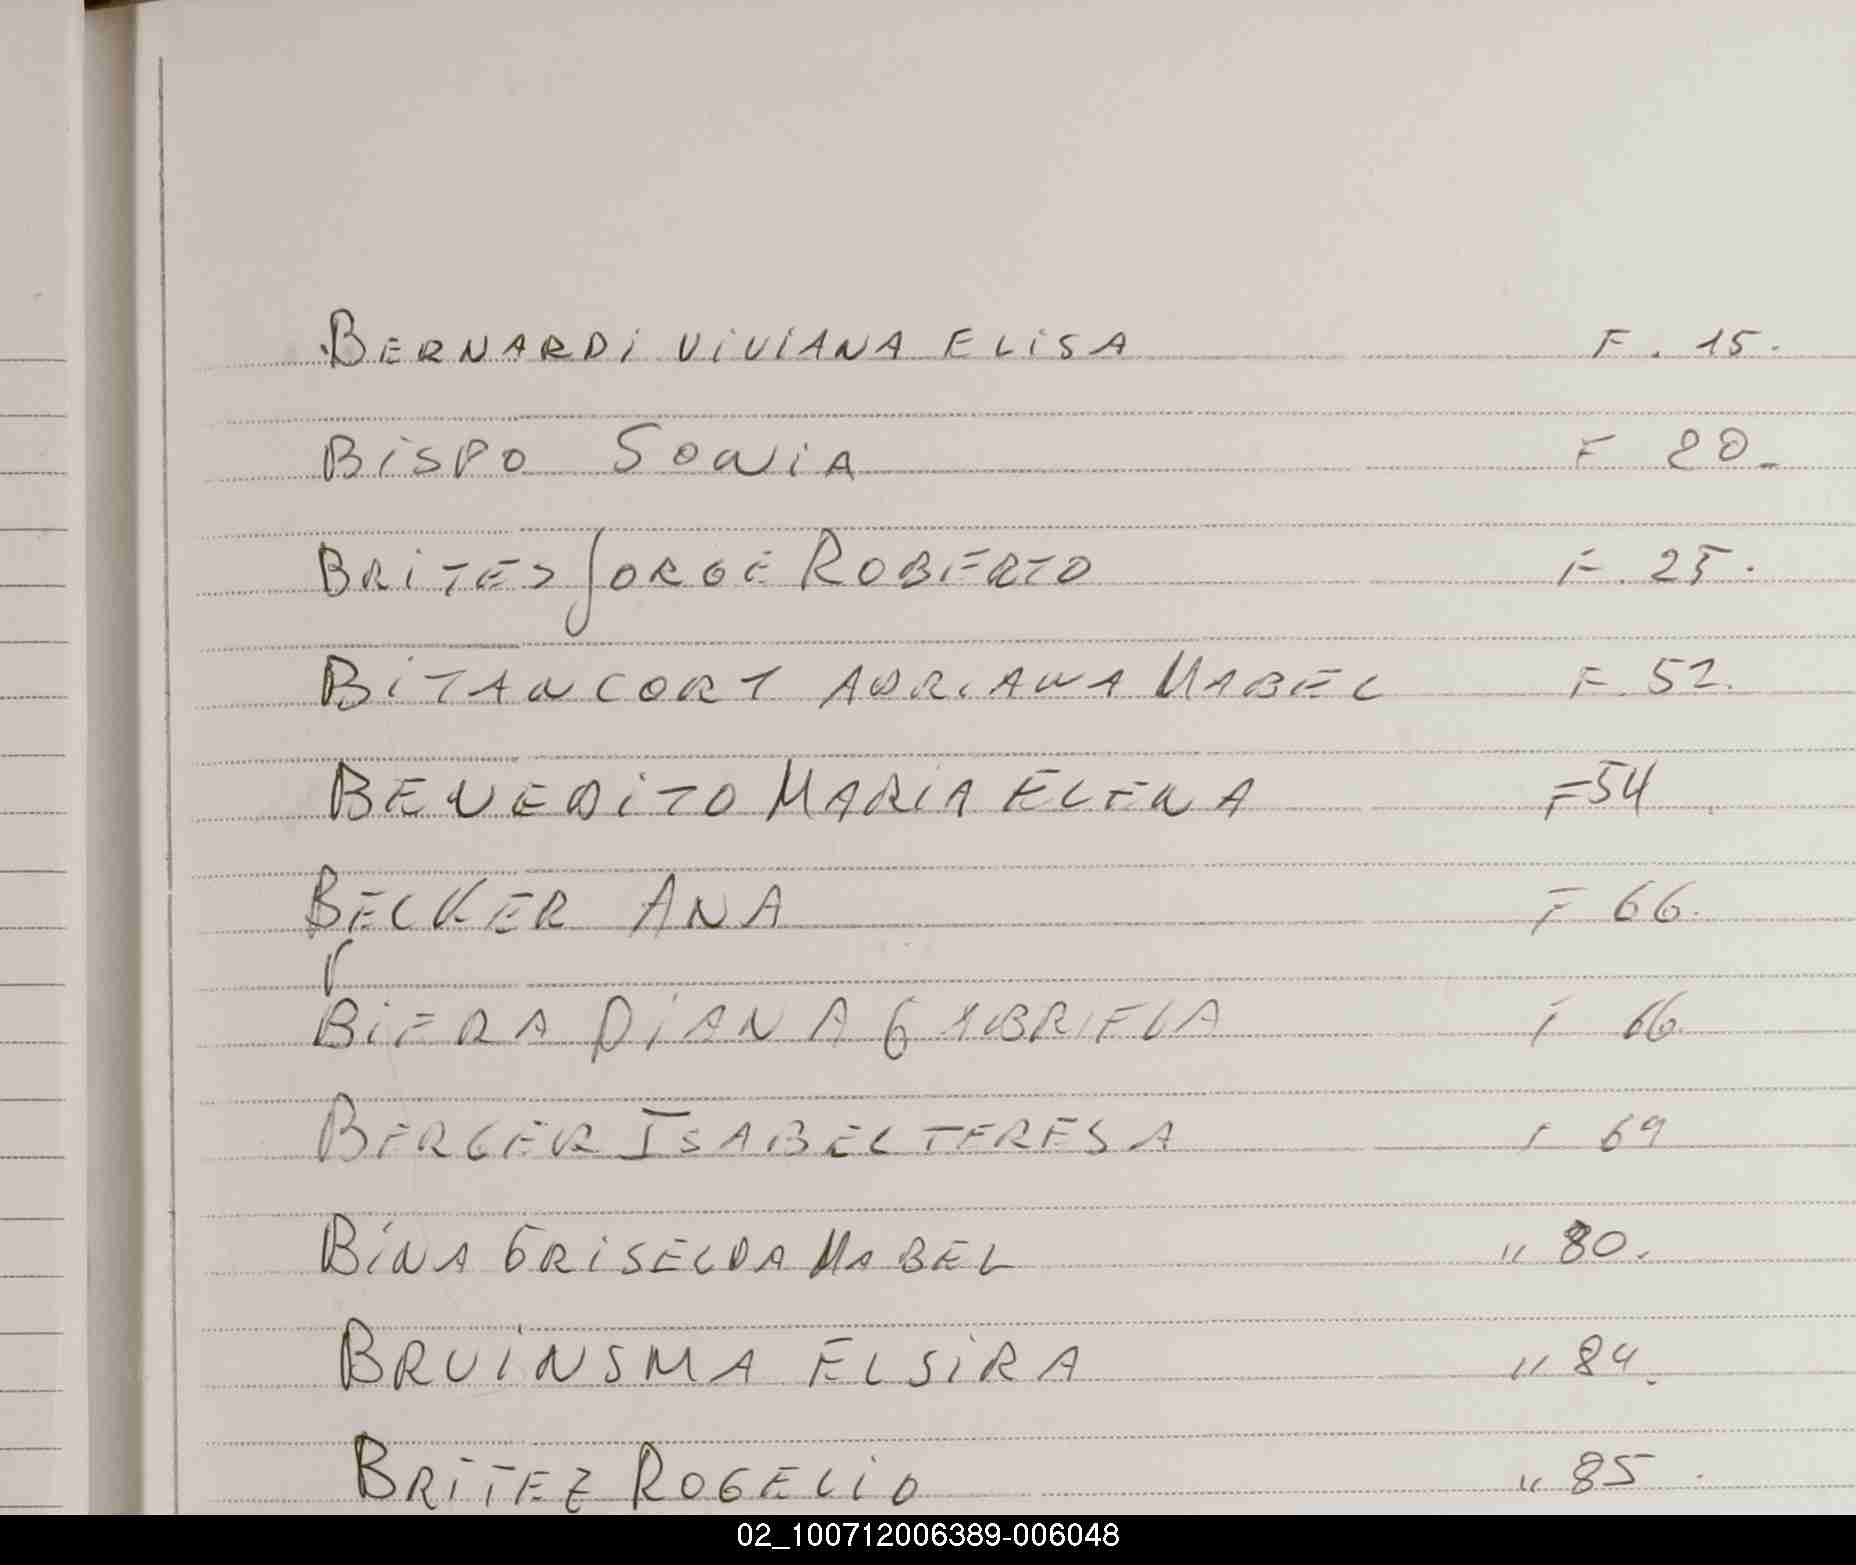 BERNARDI VIVIANA ELISA F. 15.
BISPO SONIA F 20.
BRITES JORGE ROBERTO F. 25.
BITANCORT ADRIANA MABEL F. 52.
BENEDITO MARIA ELENA F 54
BECKER ANA F 66.
BIERA DIANA GABRIELA F 66.
BERGER ISABEL TERESA F 69
BINA GRISELDA MABEL " 80.
BRUINSMA ELSIRA " 84.
BRITEZ ROGELIO " 85.
02_100712006389-006048